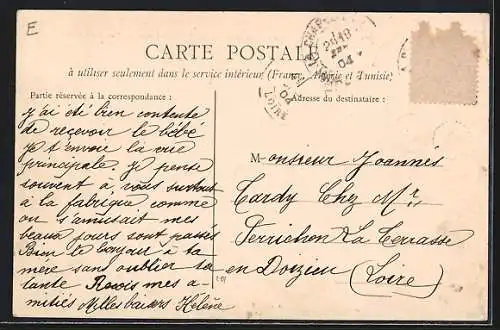 E
CARTE POSTALE
à utiliser seulement dans le service intérieur (France, Algérie et Tunisie)
Partie réservée à la correspondance :
j'ai été bien contente
de recevoir le bébé
je t'envoie la vrie
principale. je pense
souvent à vous surtout
à la fabrique comme
on s'amusait mes
beaux jours sont passés
Bien le bonjour à ta
mère sans oublier ta
tante mes a-
mitiés Milles baisers Hélène
Adresse du destinataire :
Monsieur Joannès
Tardy Chez Mr
Perrichon La Terrasse
en Doizieu (Loire)
04
LOIRE